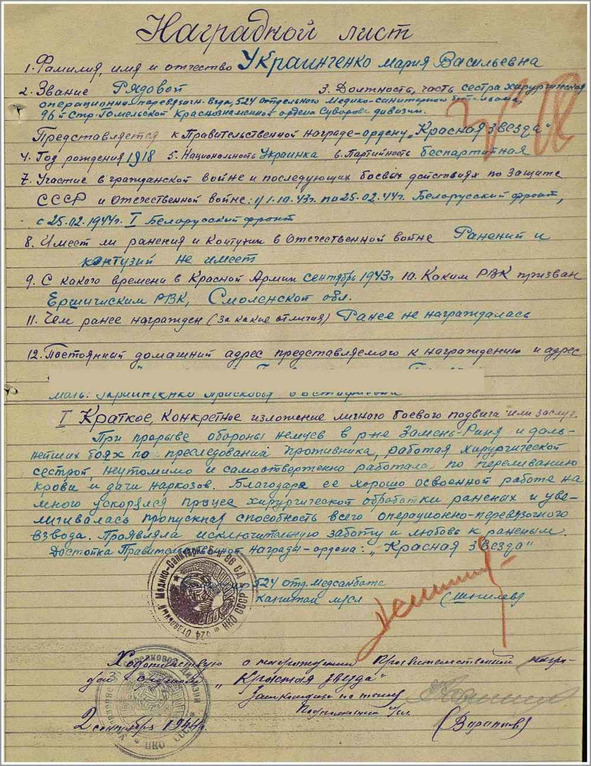 Наградной лист
1. Фамилия, имя и отчество Украинченко Мария Васильевна
2. Звание Рядовой 3. Должность, часть сестра хирургическая
операционно-перевязочн. взвода, 524 отдельного Медико-санитарного
96й Стр. Гомельской Краснознаменной ордена Суворова дивизии.
Представляется к Правительственной награде-ордену „Красная звезда"
4. Год рождения 1918 5. Национальность Украинка 6. Партийность беспартийная
7. Участие в гражданской войне и последующих боевых действиях по защите
СССР и Отечественной войне: 11.10.43г. по 25.02.44г. Белорусский фронт,
с 25.02.1944г. I Белорусский фронт
8. Имеет ли ранения и контузии в Отечественной войне Ранений и
контузий не имеет
9. С какого времени в Красной Армии сентябрь 1943г 10. Каким РВК призван
Ершичским РВК, Смоленской обл.
11. Чем ранее награжден (за какие отличия) Ранее не награждалась
12. Постоянный домашний адрес представляемого к награждению и адрес
I Краткое, конкретное изложение личного боевого подвига или заслуг
При прорыве обороны немцев в р-не Замен-Рыня и даль-
нейших боях по преследований противника, работая хирургической
сестрой неутомимо и самоотвержено работала по переливанию
крови и дачи наркозов. Благодаря ее хорошо освоенной работе на
много ускорялся процес хирургической обработки раненых и уве-
личивалась пропускная способность всего операционно-перевязочного
взвода. Проявляла исключительную заботу и любовь к раненым.
Достойна Правительственной Награды-ордена: „Красная звезда"
524 отд. Медсанбата
капитан м/сл
Ходатайствую о награждении Правительственной награ-
дой орденом „Красная звезда"
2 сентября 1944г.